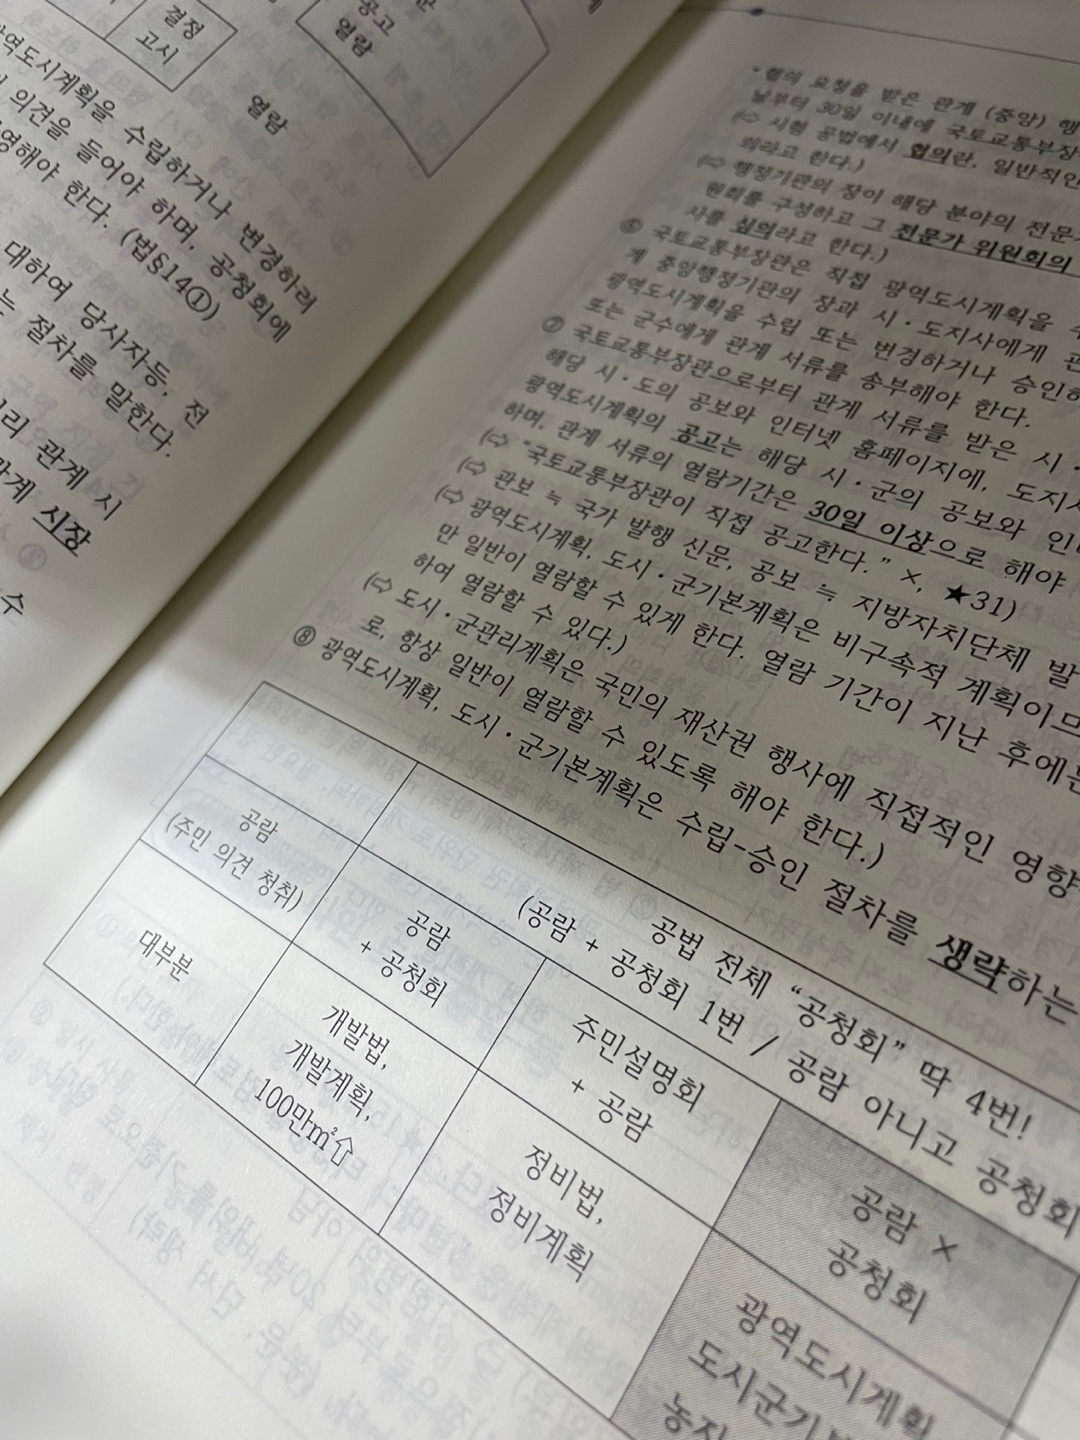 결정
고시
공고
열람
열람
역도시계획을 수립하거나 변경하려
의견을 들어야 하며, 공청회에
해야 한다. (법§14①)
대하여 당사자등, 전
는 절차를 말한다.
관계 시
시장
수
*협의 요청을 받은 관계 (중앙) 행
날부터 30일 이내에 국토교통부장
(⇨ 시험 공법에서 협의란, 일반적인
의라고 한다.)
(⇨ 행정기관의 장이 해당 분야의 전문
원회를 구성하고 그 전문가 위원회의
사를 심의라고 한다.)
⑥ 국토교통부장관은 직접 광역도시계획을 수
계 중앙행정기관의 장과 시·도지사에게 관
광역도시계획을 수립 또는 변경하거나 승인하
또는 군수에게 관계 서류를 송부해야 한다.
⑦ 국토교통부장관으로부터 관계 서류를 받은 시·
해당 시·도의 공보와 인터넷 홈페이지에, 도지사
광역도시계획의 공고는 해당 시·군의 공보와 인터
하며, 관계 서류의 열람기간은 30일 이상으로 해야
(⇨ “국토교통부장관이 직접 공고한다.” ×, ★31)
(⇨ 관보 ≒ 국가 발행 신문, 공보 ≒ 지방자치단체 발
(⇨ 광역도시계획, 도시·군기본계획은 비구속적 계획이므
만 일반이 열람할 수 있게 한다. 열람 기간이 지난 후에는
하여 열람할 수 있다.)
(⇨ 도시·군관리계획은 국민의 재산권 행사에 직접적인 영향
로, 항상 일반이 열람할 수 있도록 해야 한다.)
⑧ 광역도시계획, 도시·군기본계획은 수립-승인 절차를 생략하는
공법 전체 “공청회” 딱 4번!
(공람 + 공청회 1번 / 공람 아니고 공청회
공람
(주민 의견 청취)
공람
+ 공청회
주민설명회
+ 공람
공람 ×
공청회
대부분
개발법,
개발계획,
100만㎡⇧
정비법,
정비계획
광역도시계획
도시군기